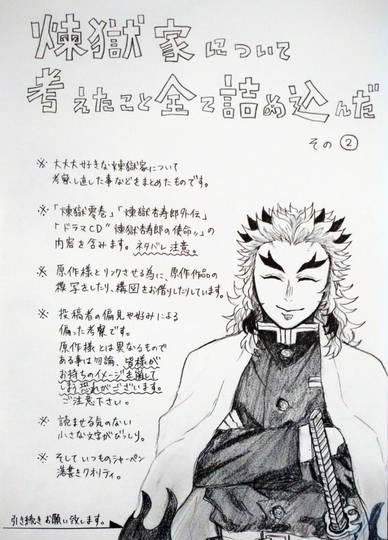 煉獄家について
考えたこと全て詰め込んだ
その②
※ 大大大好きな煉獄家について
考察し直した事などをまとめたものです。
※ 「煉獄零巻」「煉獄杏寿郎外伝」
「ドラマCD“煉獄杏寿郎の使命”」の
内容を含みます。ネタバレ注意。
※ 原作様とリンクさせる為に、原作作品の
模写をしたり、構図をお借りしたりしています。
※ 投稿者の偏見や好みによる
偏った考察です。
原作様とは異なるもので
ある事は勿論、皆様が
お持ちのイメージを壊して
しまう恐れがございます。
ご注意下さい。
※ 読ませる気のない
小さな文字がびっしり。
※ そしていつものシャーペン
落書きクオリティ。
引き続きお願い致します。